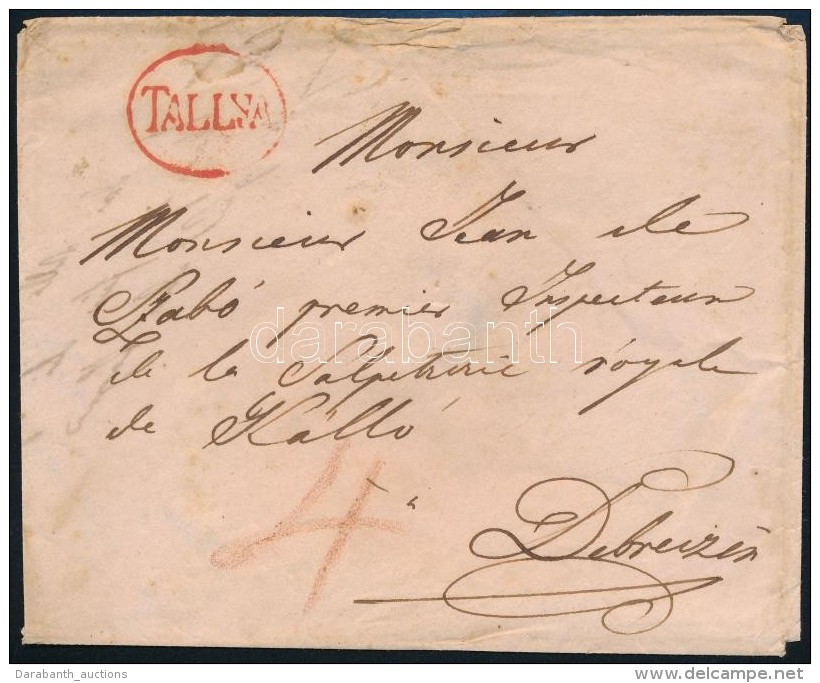 TALLYA
Monsieur
Monsieur Jean de
Szabó premier Inspecteur
de la Salpetrerie royale
de Kálló
4
à
Debreczén
darabanth
Darabanth_auctions
www.delcampe.net